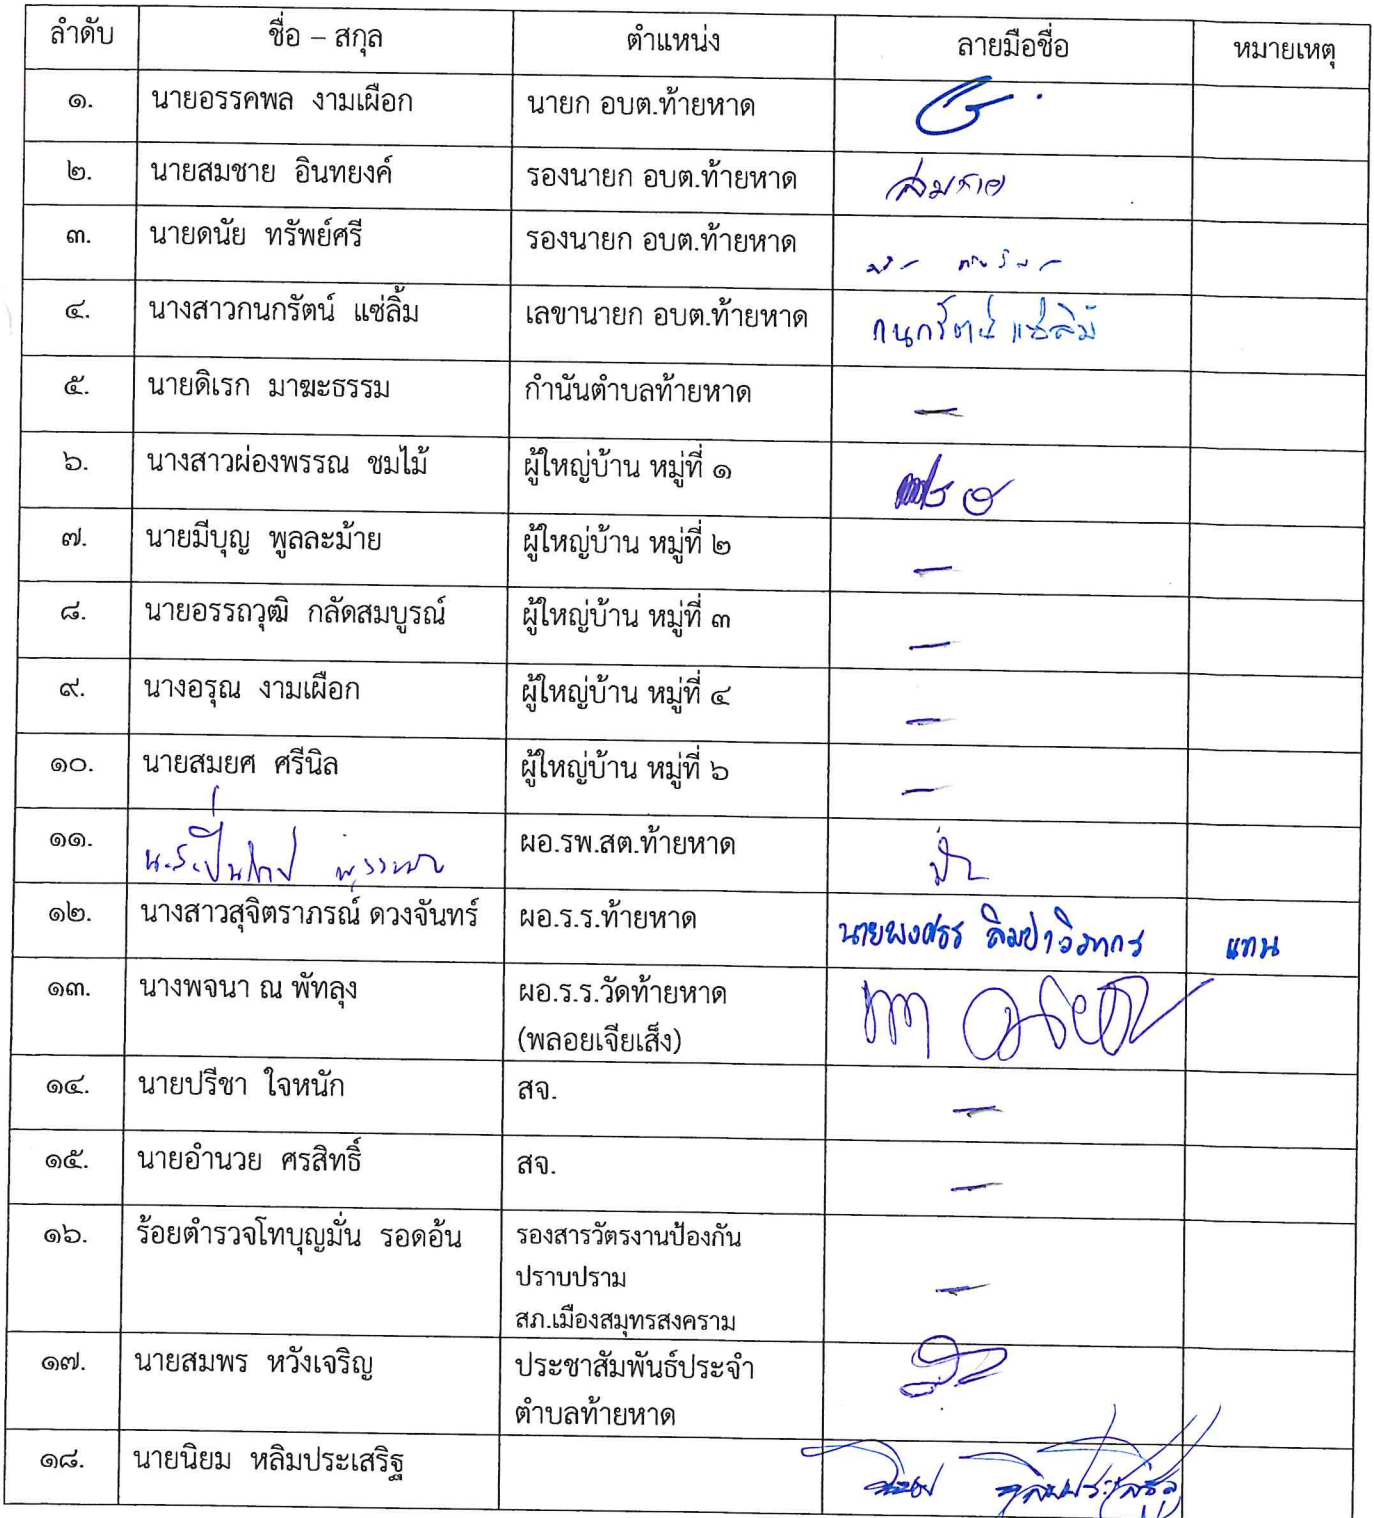 ลำดับ ชื่อ – สกุล ตำแหน่ง ลายมือชื่อ หมายเหตุ
๑. นายอรรคพล งามเผือก นายก อบต.ท้ายหาด
๒. นายสมชาย อินทยงค์ รองนายก อบต.ท้ายหาด สมชาย
๓. นายดนัย ทรัพย์ศรี รองนายก อบต.ท้ายหาด
๔. นางสาวกนกรัตน์ แซ่ลิ้ม เลขานายก อบต.ท้ายหาด กนกรัตน์ แซ่ลิ้ม
๕. นายดิเรก มาฆะธรรม กำนันตำบลท้ายหาด –
๖. นางสาวผ่องพรรณ ชมไม้ ผู้ใหญ่บ้าน หมู่ที่ ๑
๗. นายมีบุญ พูลละม้าย ผู้ใหญ่บ้าน หมู่ที่ ๒ –
๘. นายอรรถวุฒิ กลัดสมบูรณ์ ผู้ใหญ่บ้าน หมู่ที่ ๓ –
๙. นางอรุณ งามเผือก ผู้ใหญ่บ้าน หมู่ที่ ๔ –
๑๐. นายสมยศ ศรีนิล ผู้ใหญ่บ้าน หมู่ที่ ๖ –
๑๑. ผอ.รพ.สต.ท้ายหาด
๑๒. นางสาวสุจิตราภรณ์ ดวงจันทร์ ผอ.ร.ร.ท้ายหาด นายพงศธร แทน
๑๓. นางพจนา ณ พัทลุง ผอ.ร.ร.วัดท้ายหาด
(พลอยเจียเส็ง)
๑๔. นายปรีชา ใจหนัก สจ. –
๑๕. นายอำนวย ศรสิทธิ์ สจ. –
๑๖. ร้อยตำรวจโทบุญมั่น รอดอ้น รองสารวัตรงานป้องกัน
ปราบปราม –
สภ.เมืองสมุทรสงคราม
๑๗. นายสมพร หวังเจริญ ประชาสัมพันธ์ประจำ
ตำบลท้ายหาด
๑๘. นายนิยม หลิมประเสริฐ นิยม หลิมประเสริฐ